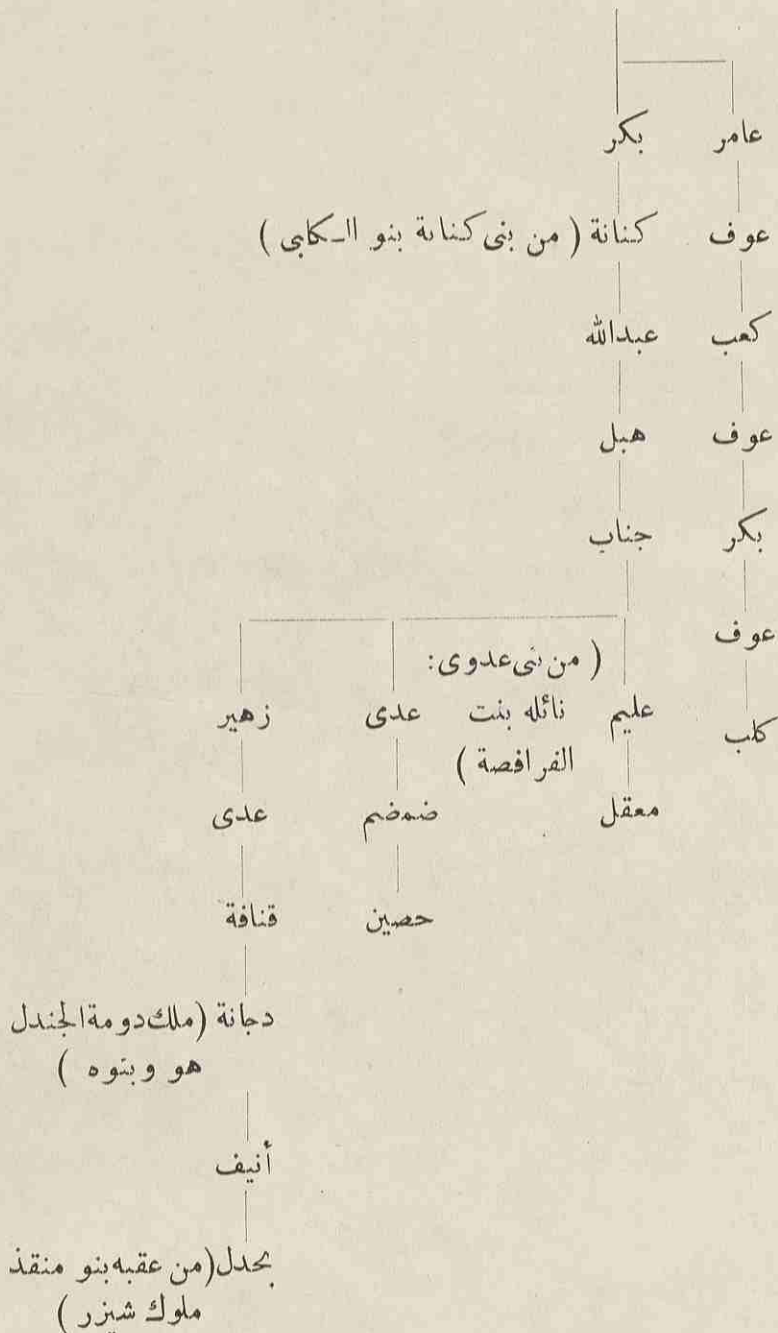 عامر بكر
عوف كنانة ( من بنى كنانة بنو الكابى )
كعب عبدالله
عوف هبل
بكر جناب
عوف
( من بنى عدوى:
عليم نائله بنت عدى زهير
كلب
الفرافصة )
معقل ضمضم عدى
حصين قنافة
دجانة (ملك دومة الجندل
هو وبنوه )
أنيف
بحدل (من عقبه بنو منقذ
ملوك شيزر )